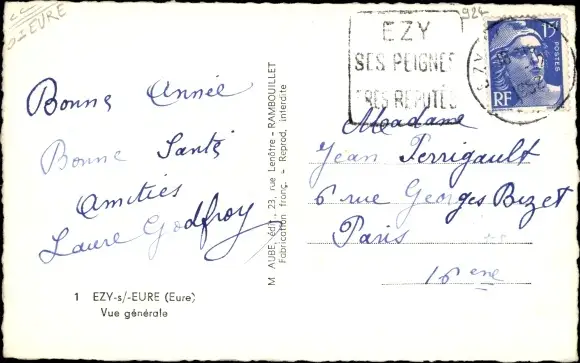 EURE
924
EZY
SES PEIGNES
TRES REPUTÉS
15F
POSTES
RF
EZY
Bonne Année
Bonne Santé
Amitiés
Laure Godfroy
1 EZY-s/-EURE (Eure)
Vue générale
M AUBE, édit., 23, rue Lenôtre - RAMBOUILLET
Fabrication franç. - Reprod. interdite
Madame
Jean Perrigault
6 rue Georges Bizet
Paris
16 eme